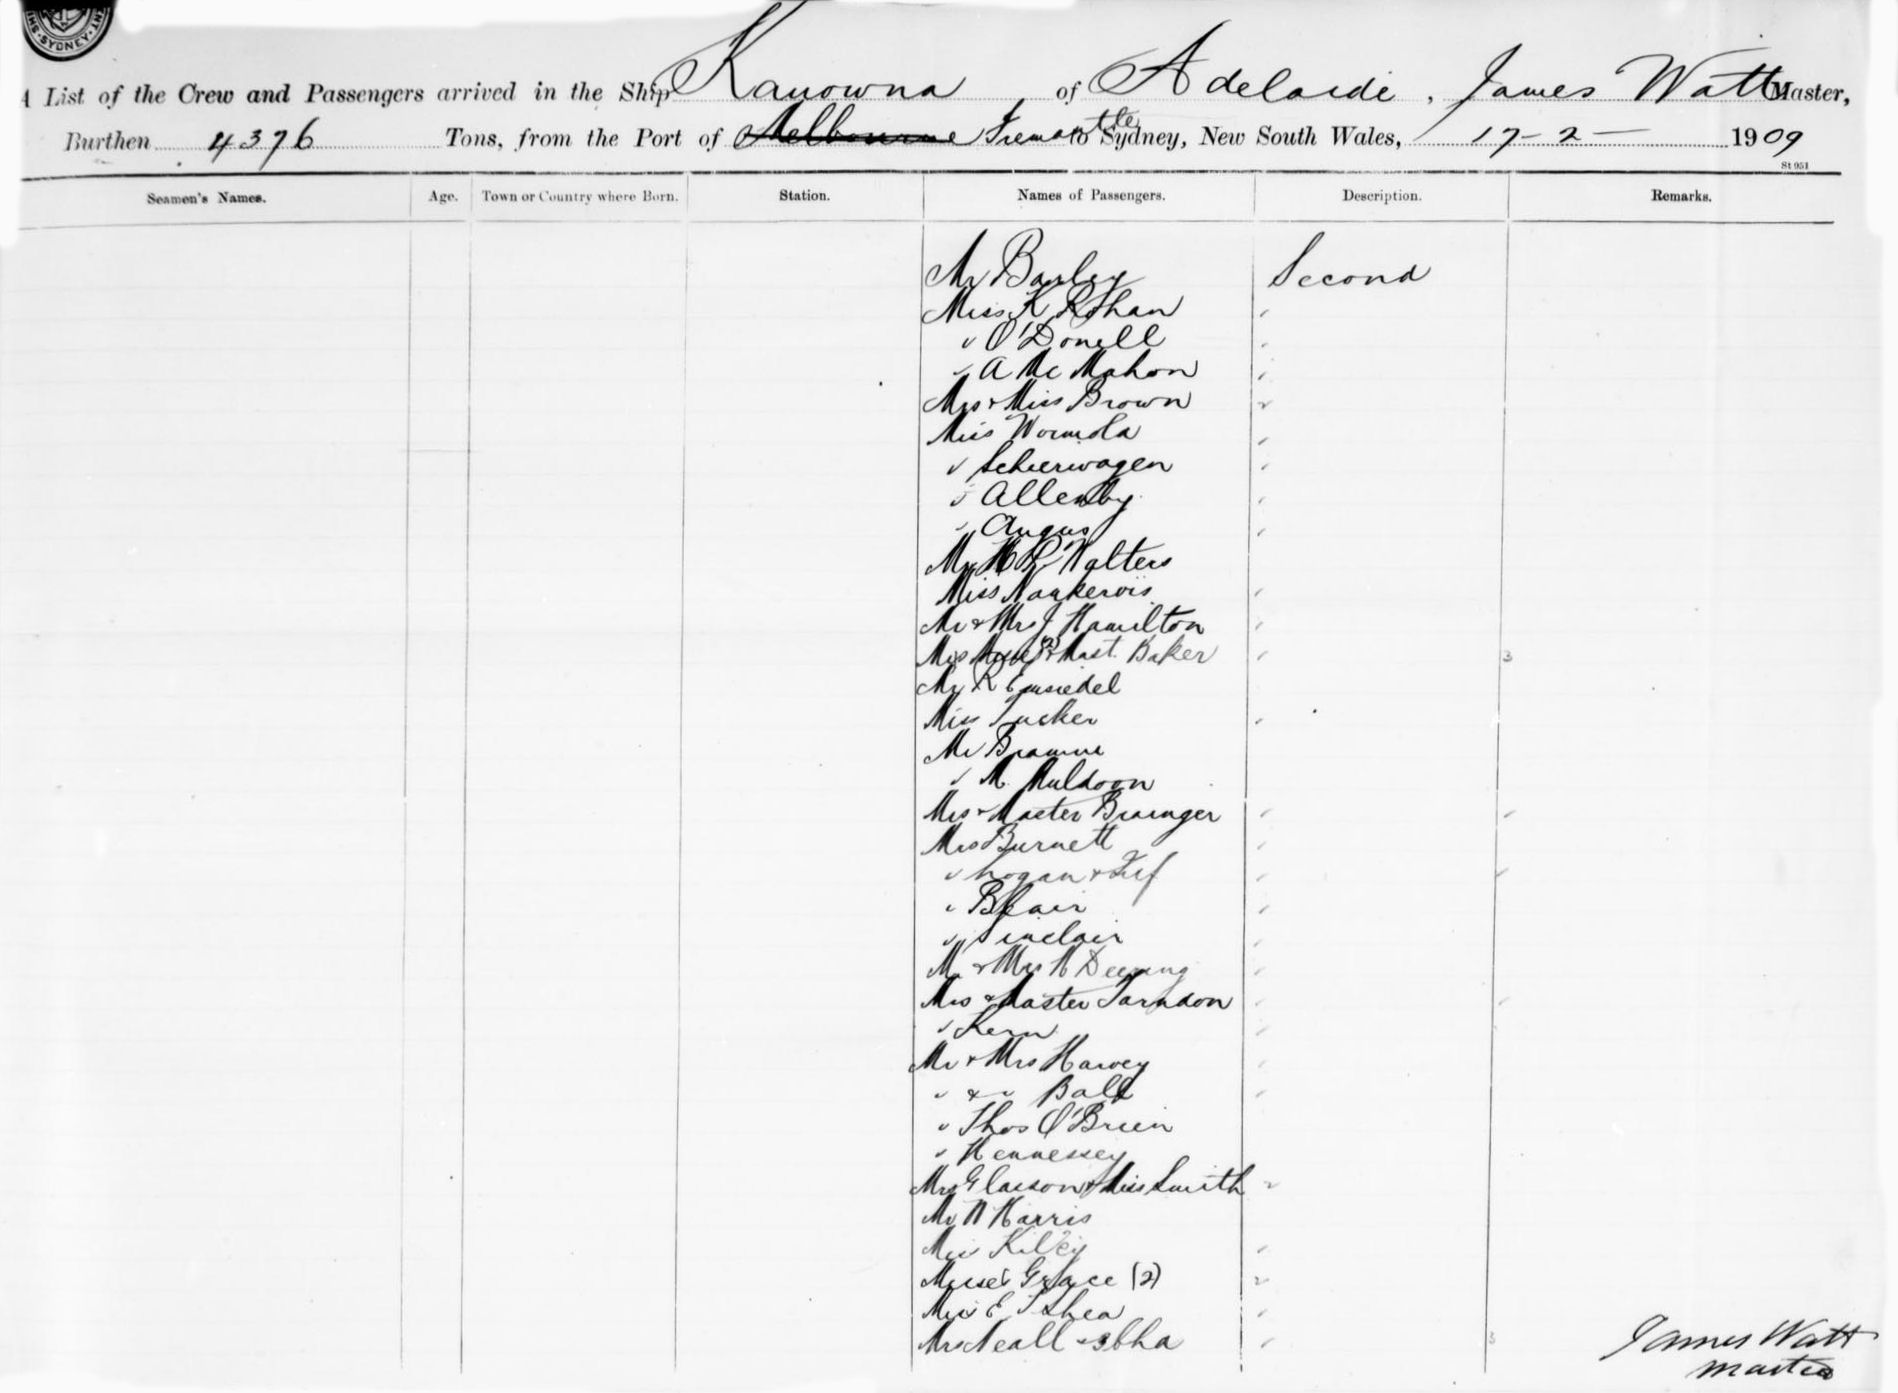 SYDNEY
A List of the Crew and Passengers arrived in the Ship Kanowna of Adelaide, James Watt Master,
Burthen 4376 Tons, from the Port of Melbourne Fremantle to Sydney, New South Wales, 17-2- 1909
St 951
Seamen's Names. Age. Town or Country where Born. Station. Names of Passengers. Description. Remarks.
Mr Second
Miss K Rohan "
" O'Donell "
" A Mc Mahon "
Mrs + Miss Brown 2
Miss "
" Scherwagen "
" Allenby "
" Angus "
Mr Walters
Miss "
Mr + Mrs J Hamilton "
Mrs + Mast. Baker " 3
Mr R Emsiedel
Miss Tucker "
Mr
" M. Muldoon
Mrs + Master " "
Mrs Burnett "
" Logan + Inf " "
" Blair "
" Sinclair "
Mr + Mrs Deeming "
Mrs + Master Tarndon " "
" Kern "
Mr + Mrs Harvey "
" + " Ball "
" Thos O'Brien
" Hennessey
Mrs Glasson + Miss Smith 2
Mr W Harris
Miss Kilbey "
Misses Grace (2) 2
Miss E Shea "
Mrs Neall + 3 Cha " 3
James Watt
Master